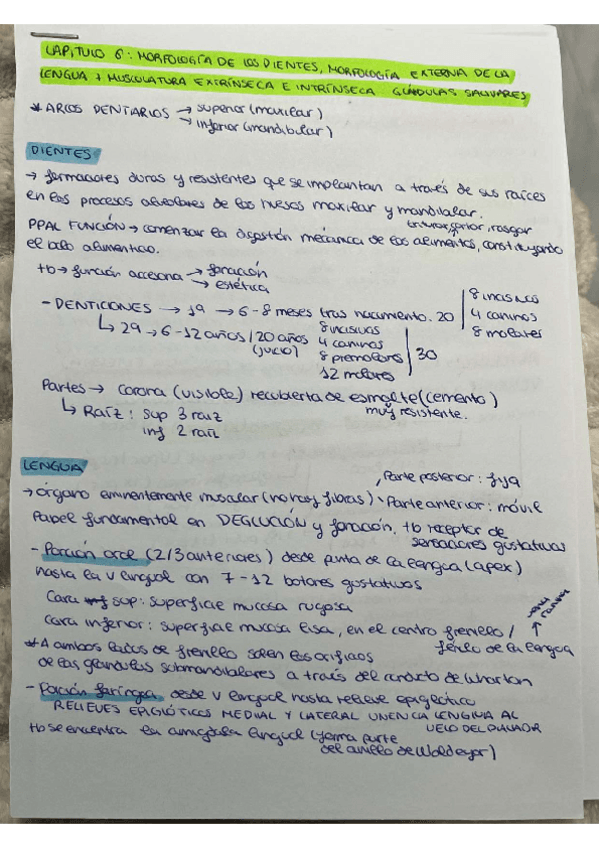 CAPITULO 6: MORFOLOGÍA DE LOS DIENTES, MORFOLOGÍA EXTERNA DE LA
LENGUA + MUSCULATURA EXTRÍNSECA E INTRÍNSECA GLÁNDULAS SALIVARES
* ARCOS DENTARIOS → superior (maxilar)
→ inferior (mandibular)
DIENTES
→ formaciones duras y resistentes que se implantan a través de sus raíces
en los procesos alveolares de los huesos maxilar y mandibular.
triturar, cortar, rasgar
PPAL FUNCIÓN → comenzar la digestión mecánica de los alimentos, constituyendo
el bolo alimenticio.
tb → función accesoria → fonación
→ estética
- DENTICIONES → 1ª → 6-8 meses tras nacimiento. 20 | 8 incisivos
4 caninos
8 molares
↳ 2ª → 6-12 años / 20 años (juicio)
8 incisivos
4 caninos
8 premolares
12 molares
| 30
Partes → Corona (visible) recubierta de esmalte (cemento)
muy resistente.
↳ Raíz: sup 3 raiz
inf 2 raiz
LENGUA
, Parte posterior: fija
→ órgano eminentemente muscular (no hay fibras) \ Parte anterior: móvil
Papel fundamental en DEGLUCIÓN y fonación, tb receptor de
sensaciones gustativas
- Porción oral (2/3 anteriores) desde punta de la lengua (apex)
hasta la V lingual con 7-12 botones gustativos
Cara inf sup: superficie mucosa rugosa
cara inferior: superficie mucosa lisa, en el centro frenillo /
frenulo de la lengua
* A ambos lados de frenillo salen los orificios
de las glándulas submandibulares a través del conducto de Wharton
- Porción faríngea desde V lingual hasta relieve epiglótico
RELIEVES EPIGLÓTICOS MEDIAL Y LATERAL UNEN LA LENGUA AL
VELO DEL PALADAR
tb se encuentra la amígdala lingual (forma parte
del anillo de Waldeyer)